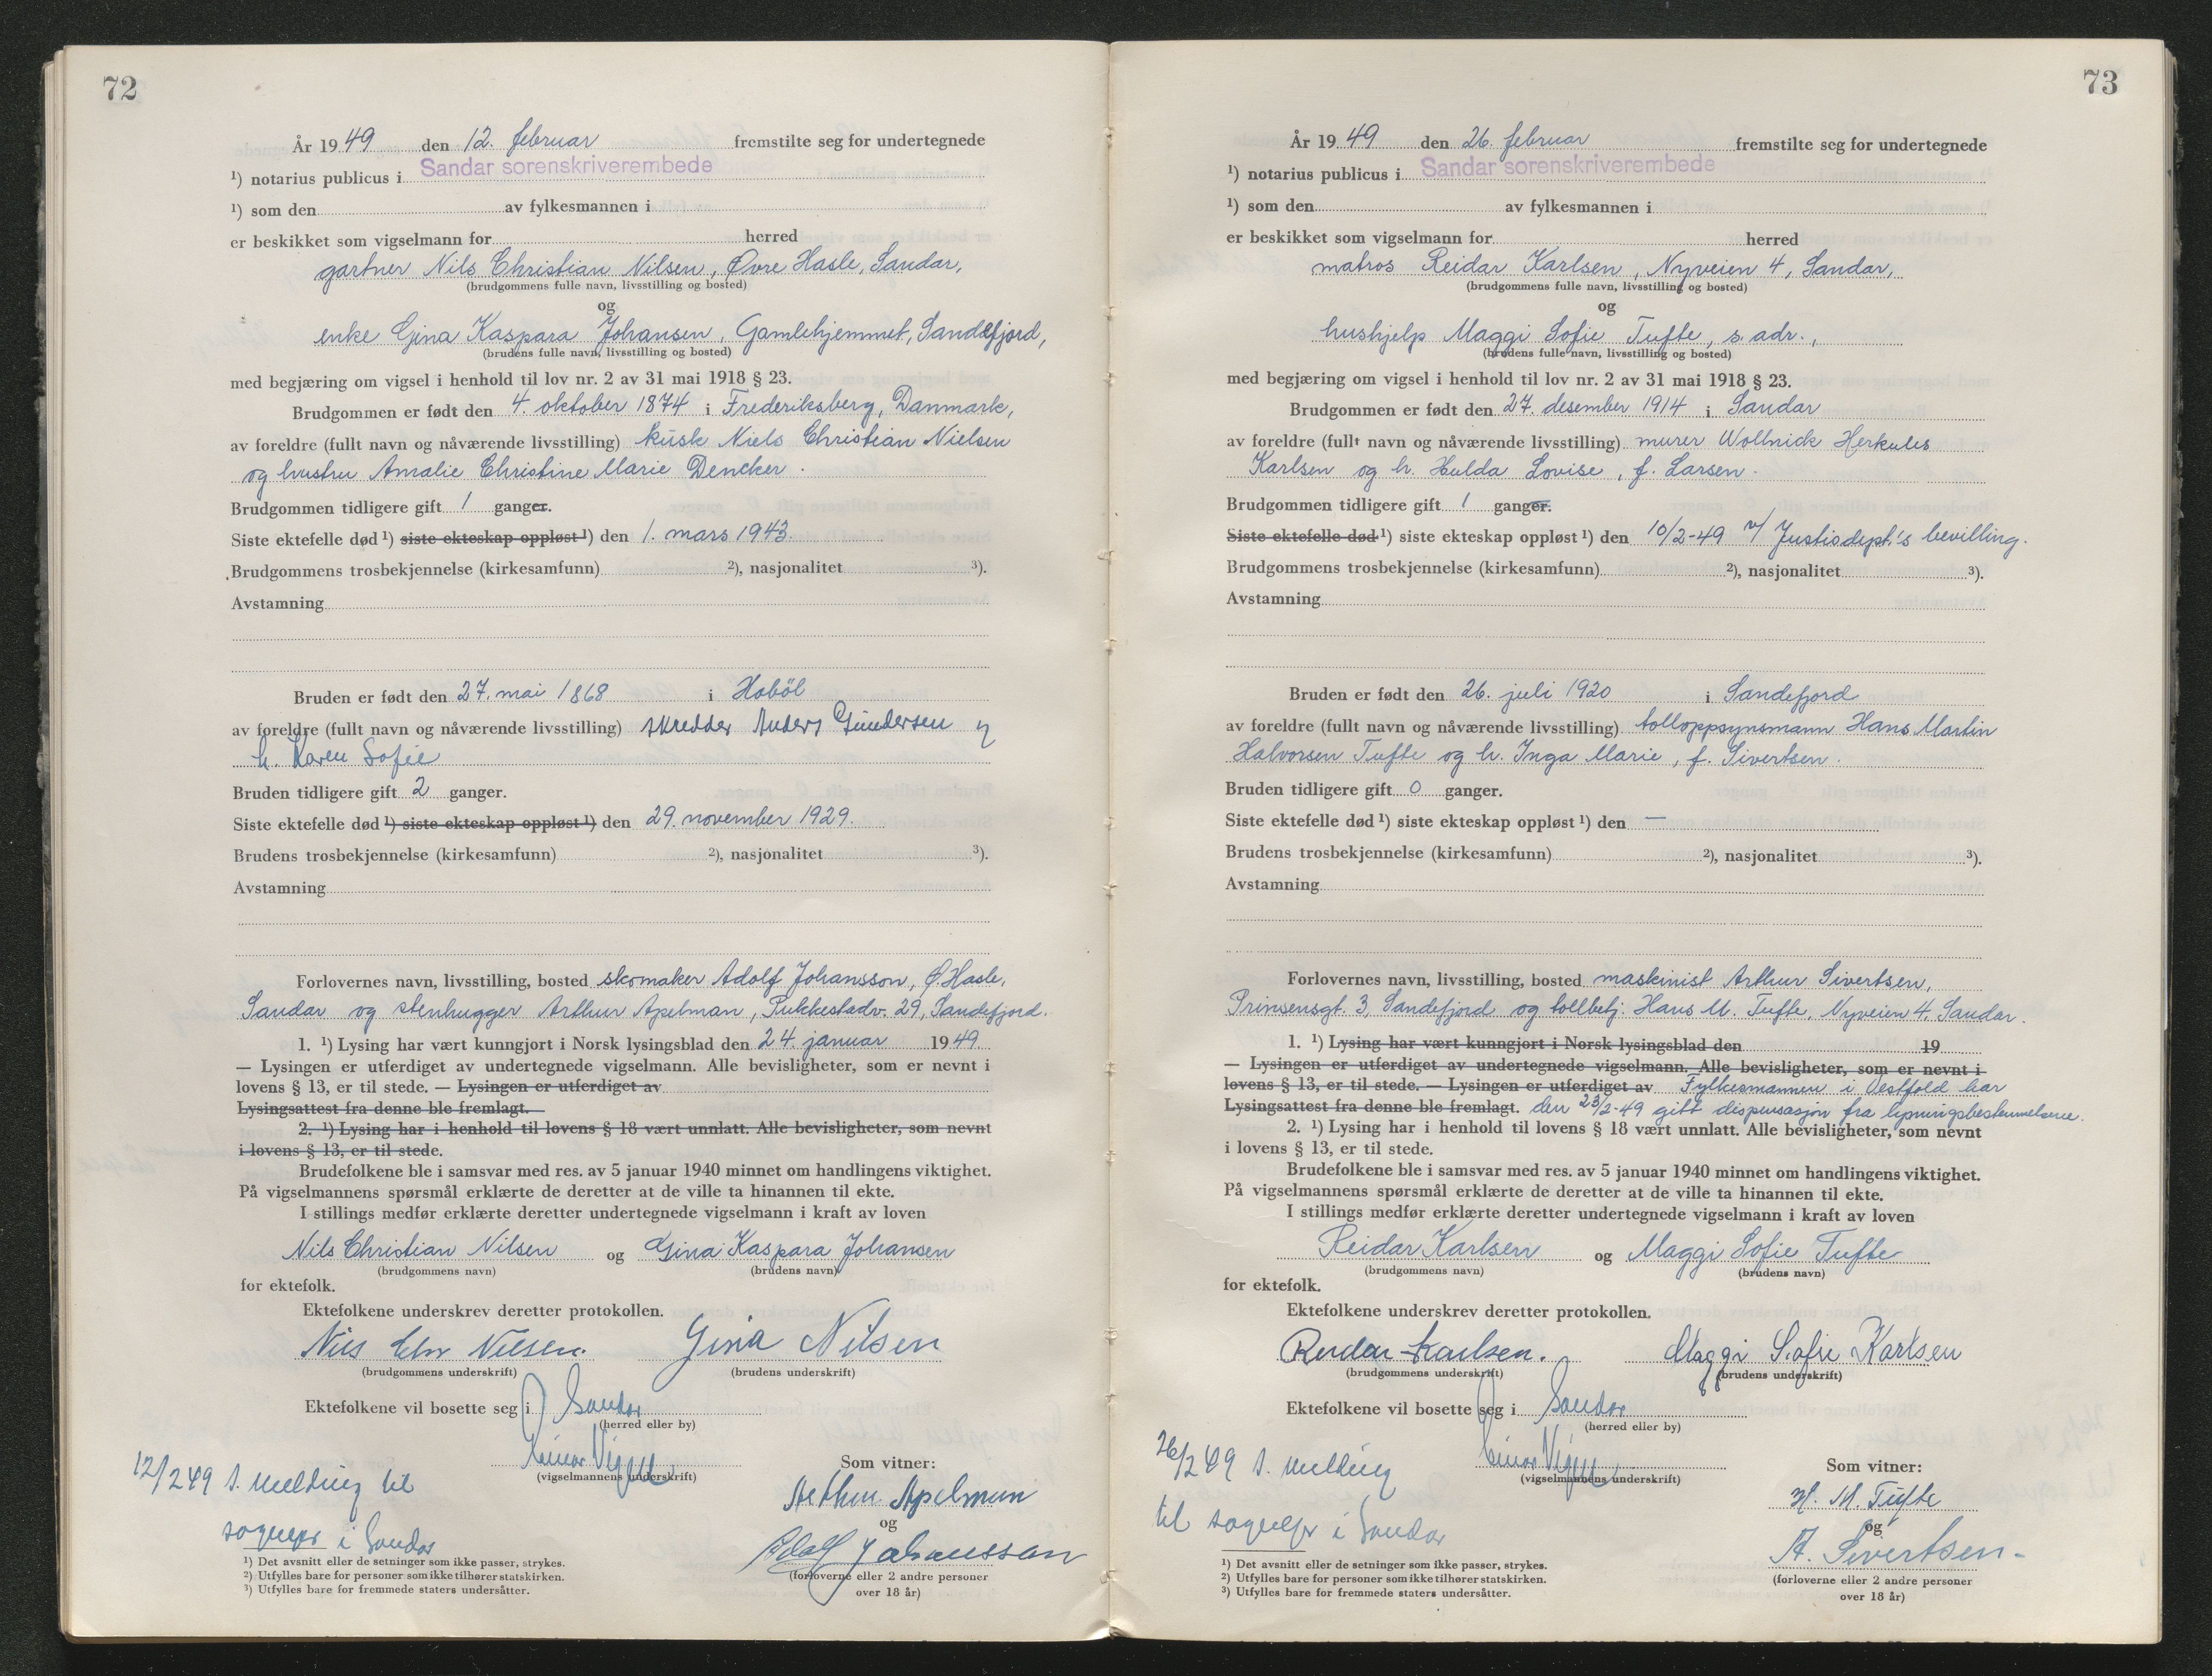 72
År 1949 den 12. februar fremstilte seg for undertegnede
¹) notarius publicus i Sandar sorenskriverembede
¹) som den av fylkesmannen i
er beskikket som vigselmann for herred
gartner Nils Christian Nilsen, Øvre Hasle, Sandar,
(brudgommens fulle navn, livsstilling og bosted)
og
enke Gina Kaspara Johansen, Gamlehjemmet, Sandefjord,
(brudens fulle navn, livsstilling og bosted)
med begjæring om vigsel i henhold til lov nr. 2 av 31 mai 1918 § 23.
Brudgommen er født den 4. oktober 1874 i Frederiksberg, Danmark,
av foreldre (fullt navn og nåværende livsstilling) kusk Niels Christian Nielsen
og hustru Amalie Christine Marie Dencker.
Brudgommen tidligere gift 1 ganger.
Siste ektefelle død ¹) siste ekteskap oppløst ¹) den 1. mars 1943.
Brudgommens trosbekjennelse (kirkesamfunn) ²), nasjonalitet ³).
Avstamning
Bruden er født den 27. mai 1868 i Hobøl
av foreldre (fullt navn og nåværende livsstilling) skredder Anders Gundersen og
h. Karen Sofie
Bruden tidligere gift 2 ganger.
Siste ektefelle død ¹) siste ekteskap oppløst ¹) den 29. november 1929.
Brudens trosbekjennelse (kirkesamfunn) ²), nasjonalitet ³).
Avstamning
Forlovernes navn, livsstilling, bosted skomaker Adolf Johansson, Ø. Hasle,
Sandar og stenhugger Arthur Apelman, Pukkestadv. 29, Sandefjord.
1. ¹) Lysing har vært kunngjort i Norsk lysingsblad den 24. januar 1949
— Lysingen er utferdiget av undertegnede vigselmann. Alle bevisligheter, som er nevnt i
lovens § 13, er til stede. — Lysingen er utferdiget av
Lysingsattest fra denne ble fremlagt.
2. ¹) Lysing har i henhold til lovens § 18 vært unnlatt. Alle bevisligheter, som nevnt
i lovens § 13, er til stede.
Brudefolkene ble i samsvar med res. av 5 januar 1940 minnet om handlingens viktighet.
På vigselmannens spørsmål erklærte de deretter at de ville ta hinannen til ekte.
I stillings medfør erklærte deretter undertegnede vigselmann i kraft av loven
Nils Christian Nilsen og Gina Kaspara Johansen
(brudgommens navn) (brudens navn)
for ektefolk.
Ektefolkene underskrev deretter protokollen.
Nils Chr Nilsen. Gina Nilsen
(brudgommens underskrift) (brudens underskrift)
Ektefolkene vil bosette seg i Sandar
(herred eller by)
Einar
(vigselmannens underskrift)
12/2 49 s. melding til
sognepr i Sandar
Som vitner:
Arthur Apelman
og
Adolf Johansson
(forloverne eller 2 andre personer
over 18 år)
¹) Det avsnitt eller de setninger som ikke passer, strykes.
²) Utfylles bare for personer som ikke tilhører statskirken.
³) Utfylles bare for fremmede staters undersåtter.
73
År 1949 den 26. februar fremstilte seg for undertegnede
¹) notarius publicus i Sandar sorenskriverembede
¹) som den av fylkesmannen i
er beskikket som vigselmann for herred
matros Reidar Karlsen, Nyveien 4, Sandar,
(brudgommens fulle navn, livsstilling og bosted)
og
hushjelp Maggi Sofie Tufte, s. adr.,
(brudens fulle navn, livsstilling og bosted)
med begjæring om vigsel i henhold til lov nr. 2 av 31 mai 1918 § 23.
Brudgommen er født den 27. desember 1914 i Sandar
av foreldre (fullt navn og nåværende livsstilling) murer Wollnick Herkules
Karlsen og h. Hulda Lovise, f. Larsen.
Brudgommen tidligere gift 1 ganger.
Siste ektefelle død ¹) siste ekteskap oppløst ¹) den 10/2-49 v/ Justisdept.'s bevilling.
Brudgommens trosbekjennelse (kirkesamfunn) ²), nasjonalitet ³).
Avstamning
Bruden er født den 26. juli 1920 i Sandefjord
av foreldre (fullt navn og nåværende livsstilling) tolloppsynsmann Hans Martin
Halvorsen Tufte og h. Inga Marie, f. Sivertsen.
Bruden tidligere gift 0 ganger.
Siste ektefelle død ¹) siste ekteskap oppløst ¹) den —
Brudens trosbekjennelse (kirkesamfunn) ²), nasjonalitet ³).
Avstamning
Forlovernes navn, livsstilling, bosted maskinist Arthur Sivertsen,
Prinsensgt. 3, Sandefjord og tollbetj. Hans M. Tufte, Nyveien 4, Sandar.
1. ¹) Lysing har vært kunngjort i Norsk lysingsblad den 19
— Lysingen er utferdiget av undertegnede vigselmann. Alle bevisligheter, som er nevnt i
lovens § 13, er til stede. — Lysingen er utferdiget av Fylkesmannen i Vestfold har
Lysingsattest fra denne ble fremlagt. den 23/2-49 gitt dispensasjon fra lysningsbestemmelsene.
2. ¹) Lysing har i henhold til lovens § 18 vært unnlatt. Alle bevisligheter, som nevnt
i lovens § 13, er til stede.
Brudefolkene ble i samsvar med res. av 5 januar 1940 minnet om handlingens viktighet.
På vigselmannens spørsmål erklærte de deretter at de ville ta hinannen til ekte.
I stillings medfør erklærte deretter undertegnede vigselmann i kraft av loven
Reidar Karlsen og Maggi Sofie Tufte
(brudgommens navn) (brudens navn)
for ektefolk.
Ektefolkene underskrev deretter protokollen.
Reidar Karlsen. Maggi Sofie Karlsen
(brudgommens underskrift) (brudens underskrift)
Ektefolkene vil bosette seg i Sandar
(herred eller by)
Einar
(vigselmannens underskrift)
26/2 49 s. melding
til sognepr i Sandar
Som vitner:
H. M. Tufte
og
A. Sivertsen-
(forloverne eller 2 andre personer
over 18 år)
¹) Det avsnitt eller de setninger som ikke passer, strykes.
²) Utfylles bare for personer som ikke tilhører statskirken.
³) Utfylles bare for fremmede staters undersåtter.